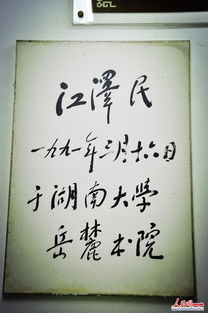 江澤民
一九九一年三月十六日
于湖南大学
岳麓书院